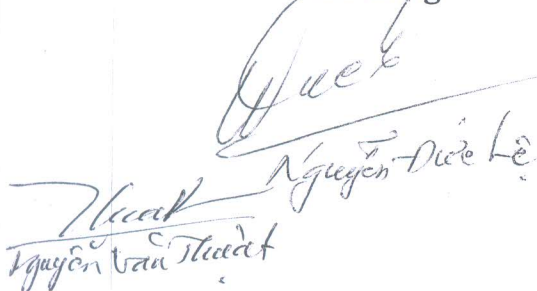 Nguyễn Đức Lệ
Thuật
Nguyễn Văn Thuật